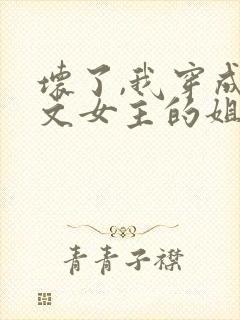 壞了,我穿成
文女主的姐
青青子襟